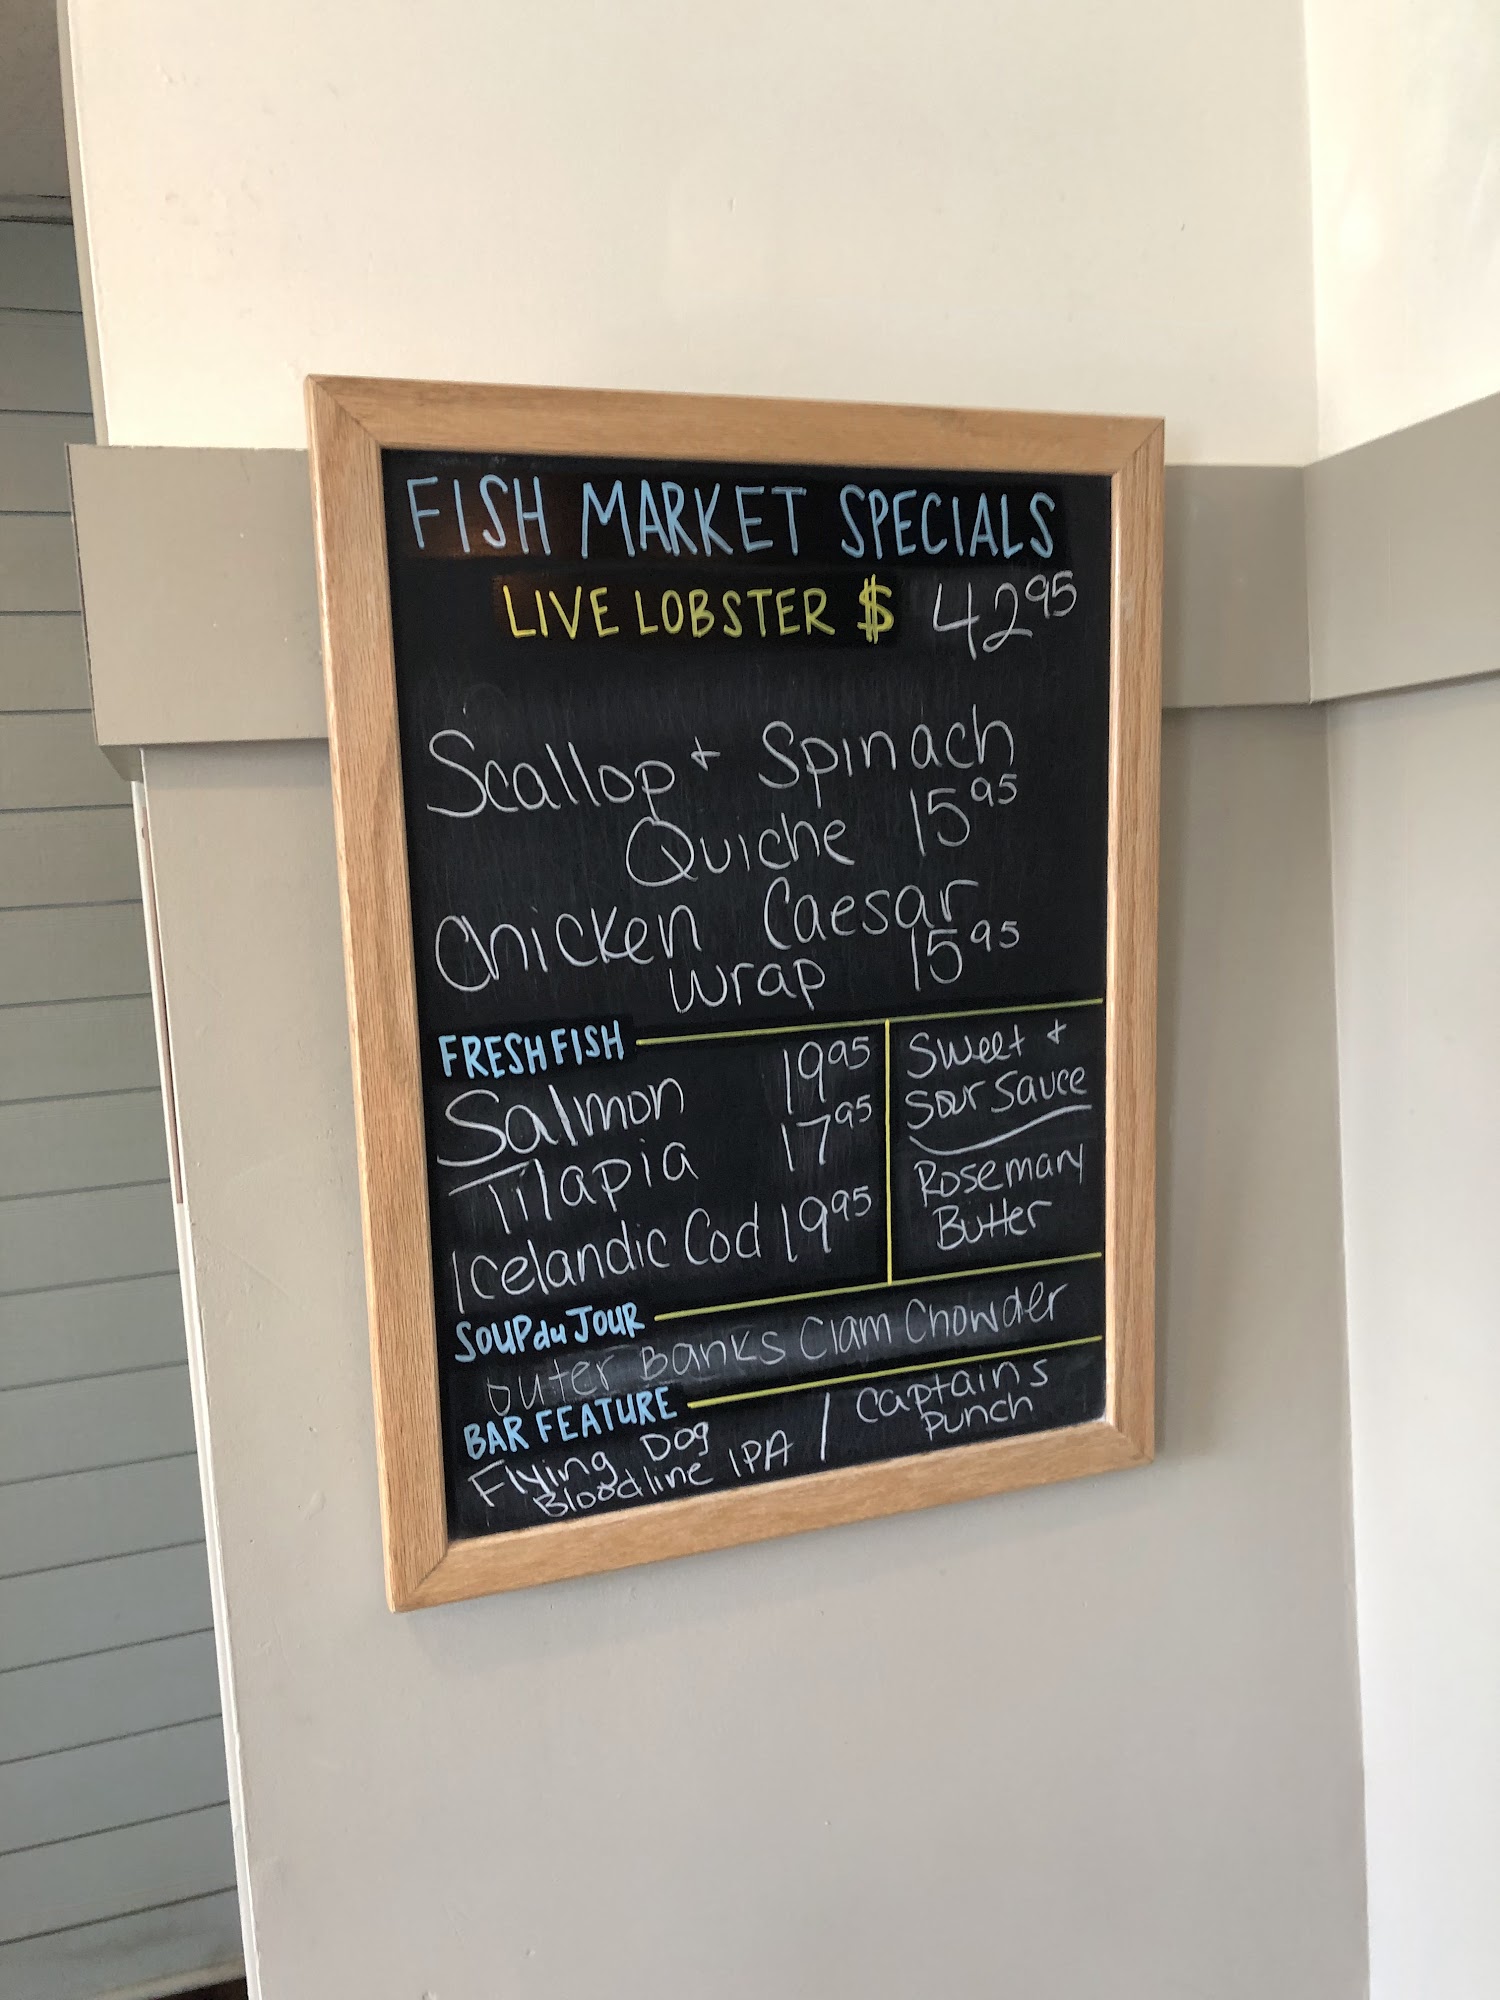 FISH MARKET SPECIALS
LIVE LOBSTER $ 42 95
Scallop + Spinach
Quiche 15 95
Chicken Caesar
Wrap 15 95
FRESH FISH
Salmon 19 95
Tilapia 17 95
Icelandic Cod 19 95
Sweet +
Sour Sauce
Rosemary
Butter
SOUP du JOUR
Outer Banks Clam Chowder
BAR FEATURE
Flying Dog
Bloodline IPA /
Captains
Punch